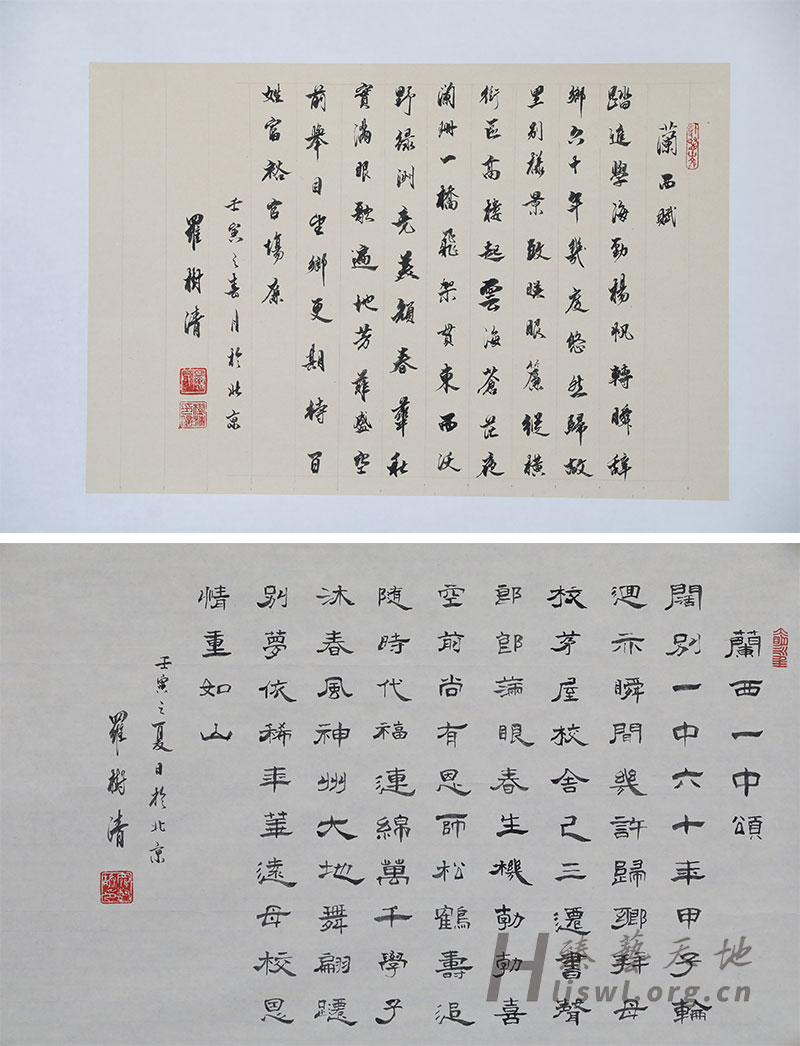 蘭西賦
踏進學海勁楊帆轉瞬辭
鄉六十年幾度悠然歸故
里別樣景致映眼簾縱橫
街區高樓起雲海蒼茫夜
闌珊一橋飛架貫東西沃
野綠洲美顔春華秋
實滿眼歌遍地芳菲盛空
前舉目望鄉更期待百
姓富裕官場廉
壬寅之春月於北京
羅樹清
蘭西一中頌
闊別一中六十年甲子輪
迴亦瞬間幾許歸鄉拜母
校茅屋校舍已三遷書聲
郎郎滿眼春生機勃勃喜
空前尚有恩師松鶴壽追
隨時代福連綿萬千學子
沐春風神州大地舞翩躚
別夢依稀年華遠母校恩
情重如山
壬寅之夏日於北京
羅樹清
臻藝天地
Hliswl.org.cn